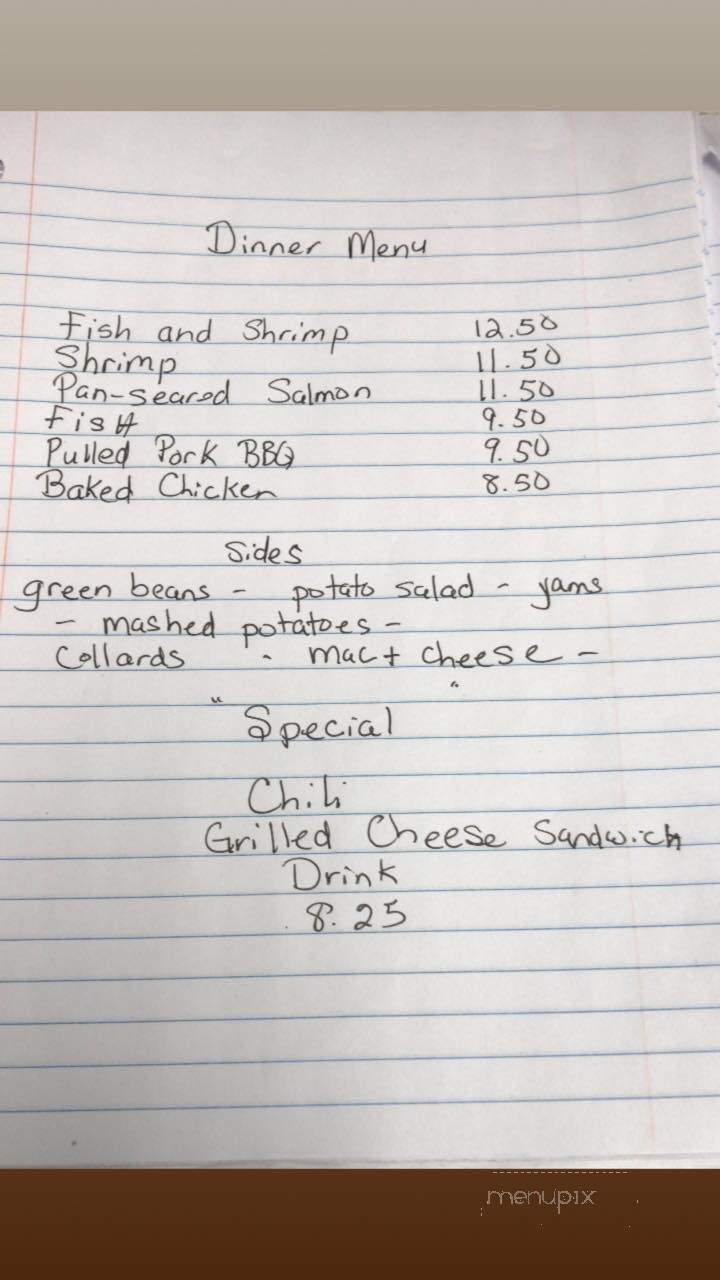 Dinner Menu
Fish and Shrimp 12.50
Shrimp 11.50
Pan-seared Salmon 11.50
Fish 9.50
Pulled Pork BBQ 9.50
Baked Chicken 8.50
Sides
green beans - potato salad - yams
- mashed potatoes -
Collards - mac + cheese -
"Special"
Chili
Grilled Cheese Sandwich
Drink
8.25
menupix